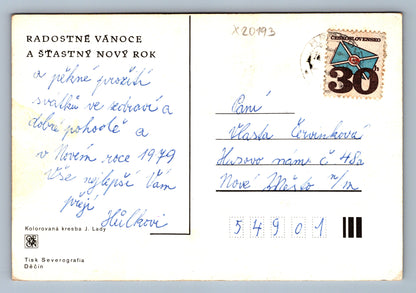 X20193
RADOSTNÉ VÁNOCE
A ŠŤASTNÝ NOVÝ ROK
a pěkné prožití
svátků ve zdraví a
dobré pohodě a
v Novém roce 1979
Vše nejlepší Vám
přejí
Hůlkovi
Kolorovaná kresba J. Lady
Tisk Severografia
Děčín
ČESKOSLOVENSKO
30h
Paní
Vlasta Červinková
Husovo nám č 48a
Nové Město n/m
54901